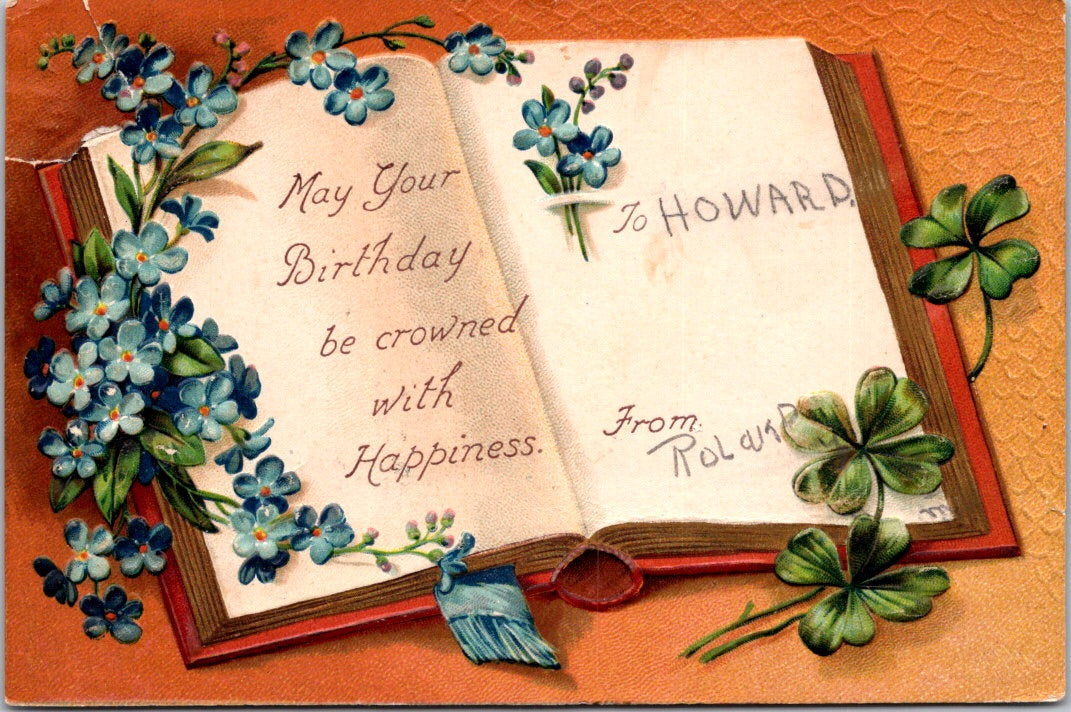 May Your
Birthday
be crowned
with
Happiness.
To HOWARD.
From.